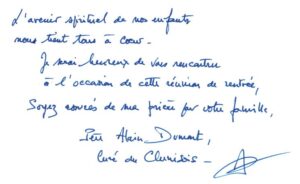 L'avenir spirituel de nos enfants
nous tient tous à cœur.
Je serai heureux de vous rencontrer
à l'occasion de cette réunion de rentrée,
Soyez assurés de ma prière pour votre famille,
Père Alain Dumont,
Curé du Clunisois -